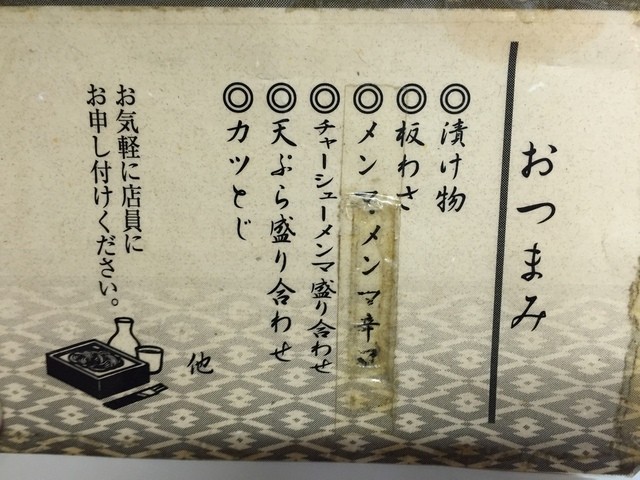 おつまみ
◎漬け物
◎板わさ
◎メンマ・メンマ辛口
◎チャーシューメンマ盛り合わせ
◎天ぷら盛り合わせ
◎カツとじ
他
お気軽に店員に
お申し付けください。